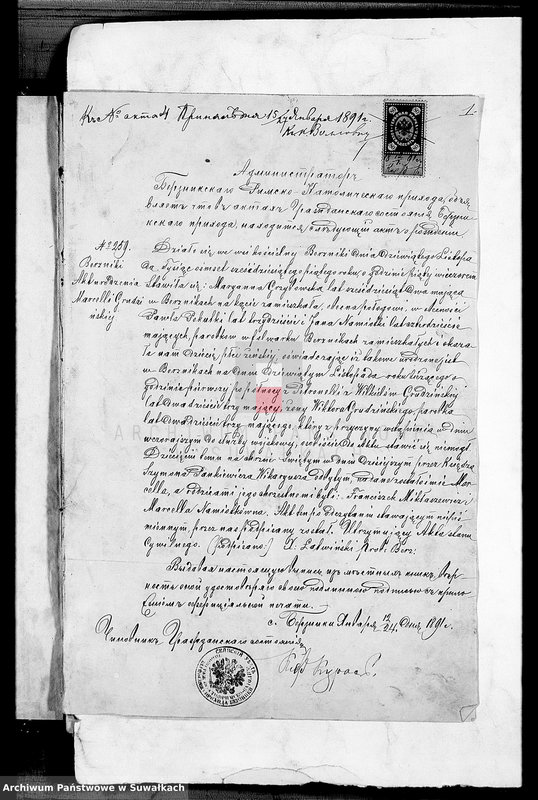 Къ № акта 4 Принятъ 15/27 Января 1891 г.
1.
Администраторъ
Бержникскаго Римско-Католическаго прихода, объя-
вляетъ что въ актахъ Гражданскаго состоянія Берж-
никскаго прихода, находится слѣдующій актъ о рожденіи
№ 259.
Berzniki
Akt urodzenia
Marcelli Grudziń
skiej
Działo się we wsi kościelnej Berzniki Dnia Dziewiątego Listopa
da, tysiąc ośmset sześćdziesiątego piątego roku o godzinie piątej wieczorem
Stawiła się: Maryanna lat sześćdziesiąt dwa mająca
w Berznikach na zamieszkała, w obecności
Pawła lat trzydzieści i Jana Namiotki lat
mających, parobków w folwarku Berznikach zamieszkałych i okaza
ła nam Dziecię płci żeńskiej, oświadczając iż takowe urodzone jest
w Berznikach na Dniu Dziewiątym Listopada roku bieżącego o
godzinie pierwszej po północy z Petronelli z Grudzińskiej
lat dwadzieścia trzy mającej, żony Wiktora Grudzińskiego parobka
lat dwadzieścia trzy mającego, który z przyczyny w dniu
wczorajszym do służby wojskowej, osobiście do Akta stawić się niemógł.
Dziecięciu temu na chrzcie Świętym w dniu Dzisiejszym przez Księdza
Szymona Jankiewicza Wikaryusza odbytym, nadane zostało imię Mar
cella, a rodzicami jego chrzestnemi byli: Franciszek Mikłaszewicz
Marcella Namiotkówna. Akt ten po odczytaniu stawającym niepiś
miennym, przez nas podpisany został. Utrzymujący Akta stanu
Cywilnego. (podpisano) X. Latwiński Prob. Berz:
Выдавая настоящую выпись изъ мѣстныхъ книгъ, вѣр-
ность оной удостовѣряю своею подлинной подписью съ прило
женіемъ оффиціальной печати.
с. Бержники Января 12/24 Дня 1891 г.
Чиновникъ Гражданскаго состоянія
Archiwum Państwowe w Suwałkach